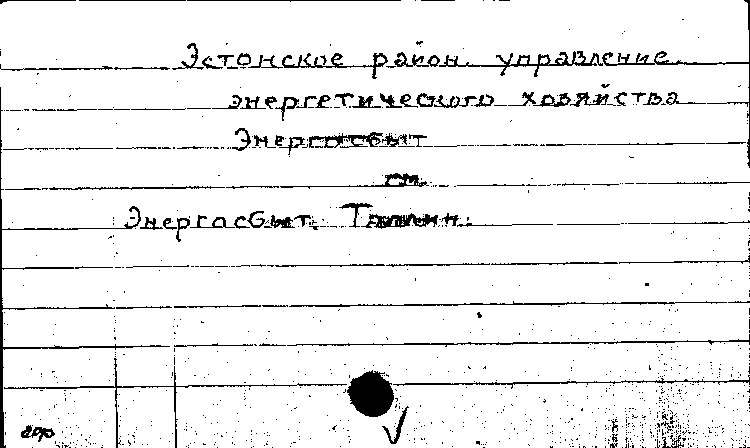 Эстонское район. управление
энергетического хозяйства
Энергосбыт
см.
Энергосбыт. Таллин.